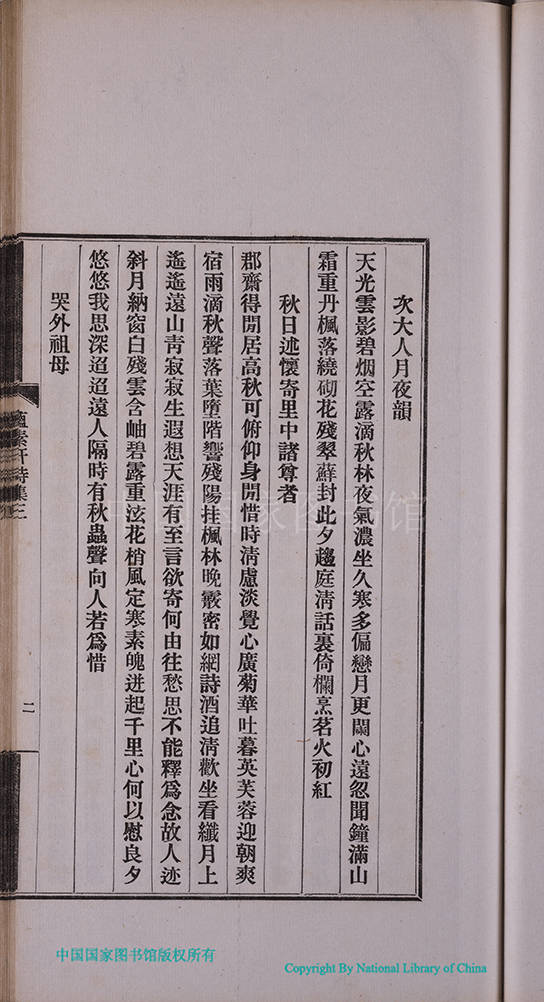 次大人月夜韻
天光雲影碧烟空露滴秋林夜氣濃坐久寒多偏戀月更闌心遠忽聞鐘滿山
霜重丹楓落繞砌花殘翠蘚封此夕趨庭清話裏倚欄烹茗火初紅
秋日述懷寄里中諸尊者
郡齋得閒居高秋可俯仰身閒惜時淸慮淡覺心廣菊華吐暮英芙蓉迎朝爽
宿雨滴秋聲落葉墮階響殘陽挂楓林晚霰密如網詩酒追淸歡坐看纖月上
遙遙遠山靑寂寂生遐想天涯有至言欲寄何由往愁思不能釋爲念故人迹
斜月納窗白殘雲含岫碧露重泫花梢風定寒素魄迸起千里心何以慰良夕
悠悠我思深迢迢遠人隔時有秋蟲聲向人若爲惜
哭外祖母
蘊素軒詩集三
二
中国国家图书馆
中国国家图书馆版权所有
Copyright By National Library of China